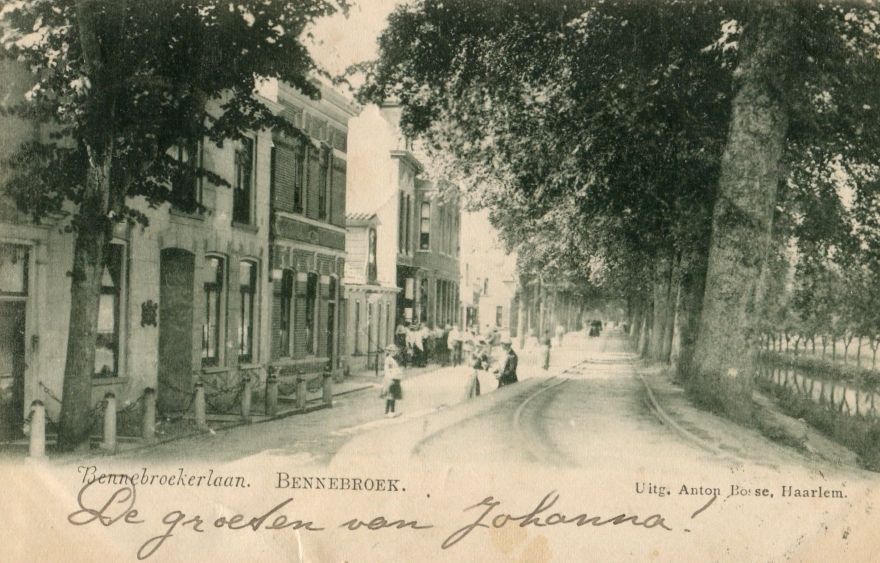 Bennebroekerlaan. BENNEBROEK.
Uitg. Anton Bosse, Haarlem.
De groeten van Johanna!